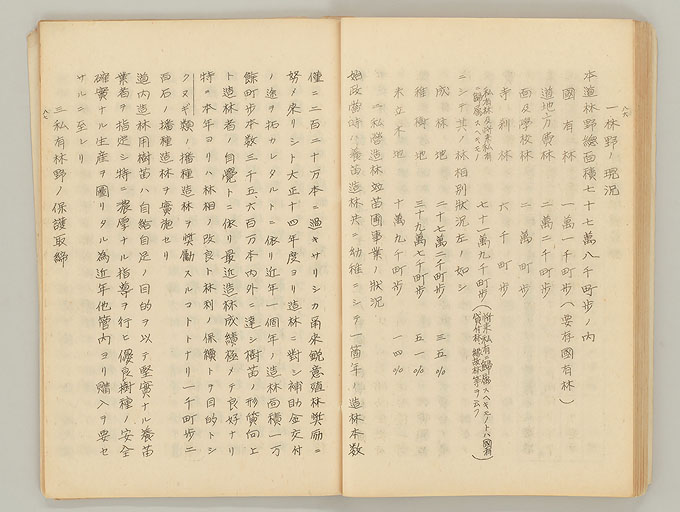 八六
一林野ノ現況
本道林野總面積七十七萬八千町歩ノ内
國有林 一萬一千町歩(要存國有林)
道地方費林 一萬二千町歩
面及學校林 二萬町歩
寺刹林 六千町歩
私有林及將來私有ニ歸屬スヘキモノ 七十一萬九千町歩(將來私有ニ歸屬スヘキモノトハ國有貸付林、縁故林等ヲ云フ)
ニシテ其ノ林相別狀況左ノ如シ
成林地 二十七萬二千町歩 三五%
稚樹地 三十九萬七千町歩 五一%
未立木地 十萬九千町歩 一四%
二私營造林效苗圃事業ノ狀況
始政當時ハ養苗造林共ニ幼稚ニシテ一箇年ノ造林本數
僅ニ二百二十万本ニ過キサリシカ爾來鋭意殖林奬励ニ
努メ來リシト大正十四年度ヨリ造林ニ對シ補助金交付
ノ途ヲ拓カレタルトニ依リ近年一個年ノ造林面積一万
餘町歩本數三千五六百万本内外ニ達シ樹苗ノ形質向上
ト造林者ノ自覺トニ依リ最近造林成績極メテ良好ナリ
特ニ本年ヨリハ林相ノ改良ト林利ノ保續トヲ目的トシ
クヌギ類ノ播種造林ヲ奬勵スルコトトナリ一千町歩ニ
百石ノ播種造林ヲ實施セリ
道内造林用樹苗ハ自給自足ノ目的ヲ以テ堅實ナル養苗
業者ヲ指定シ特ニ濃厚ナル指導ヲ行ヒ優良樹種ノ安全
確實ナル生産ヲ圖リタル為近年他管内ヨリ購入ヲ要セ
サルニ至レリ
三私有林野ノ保護取締
八七